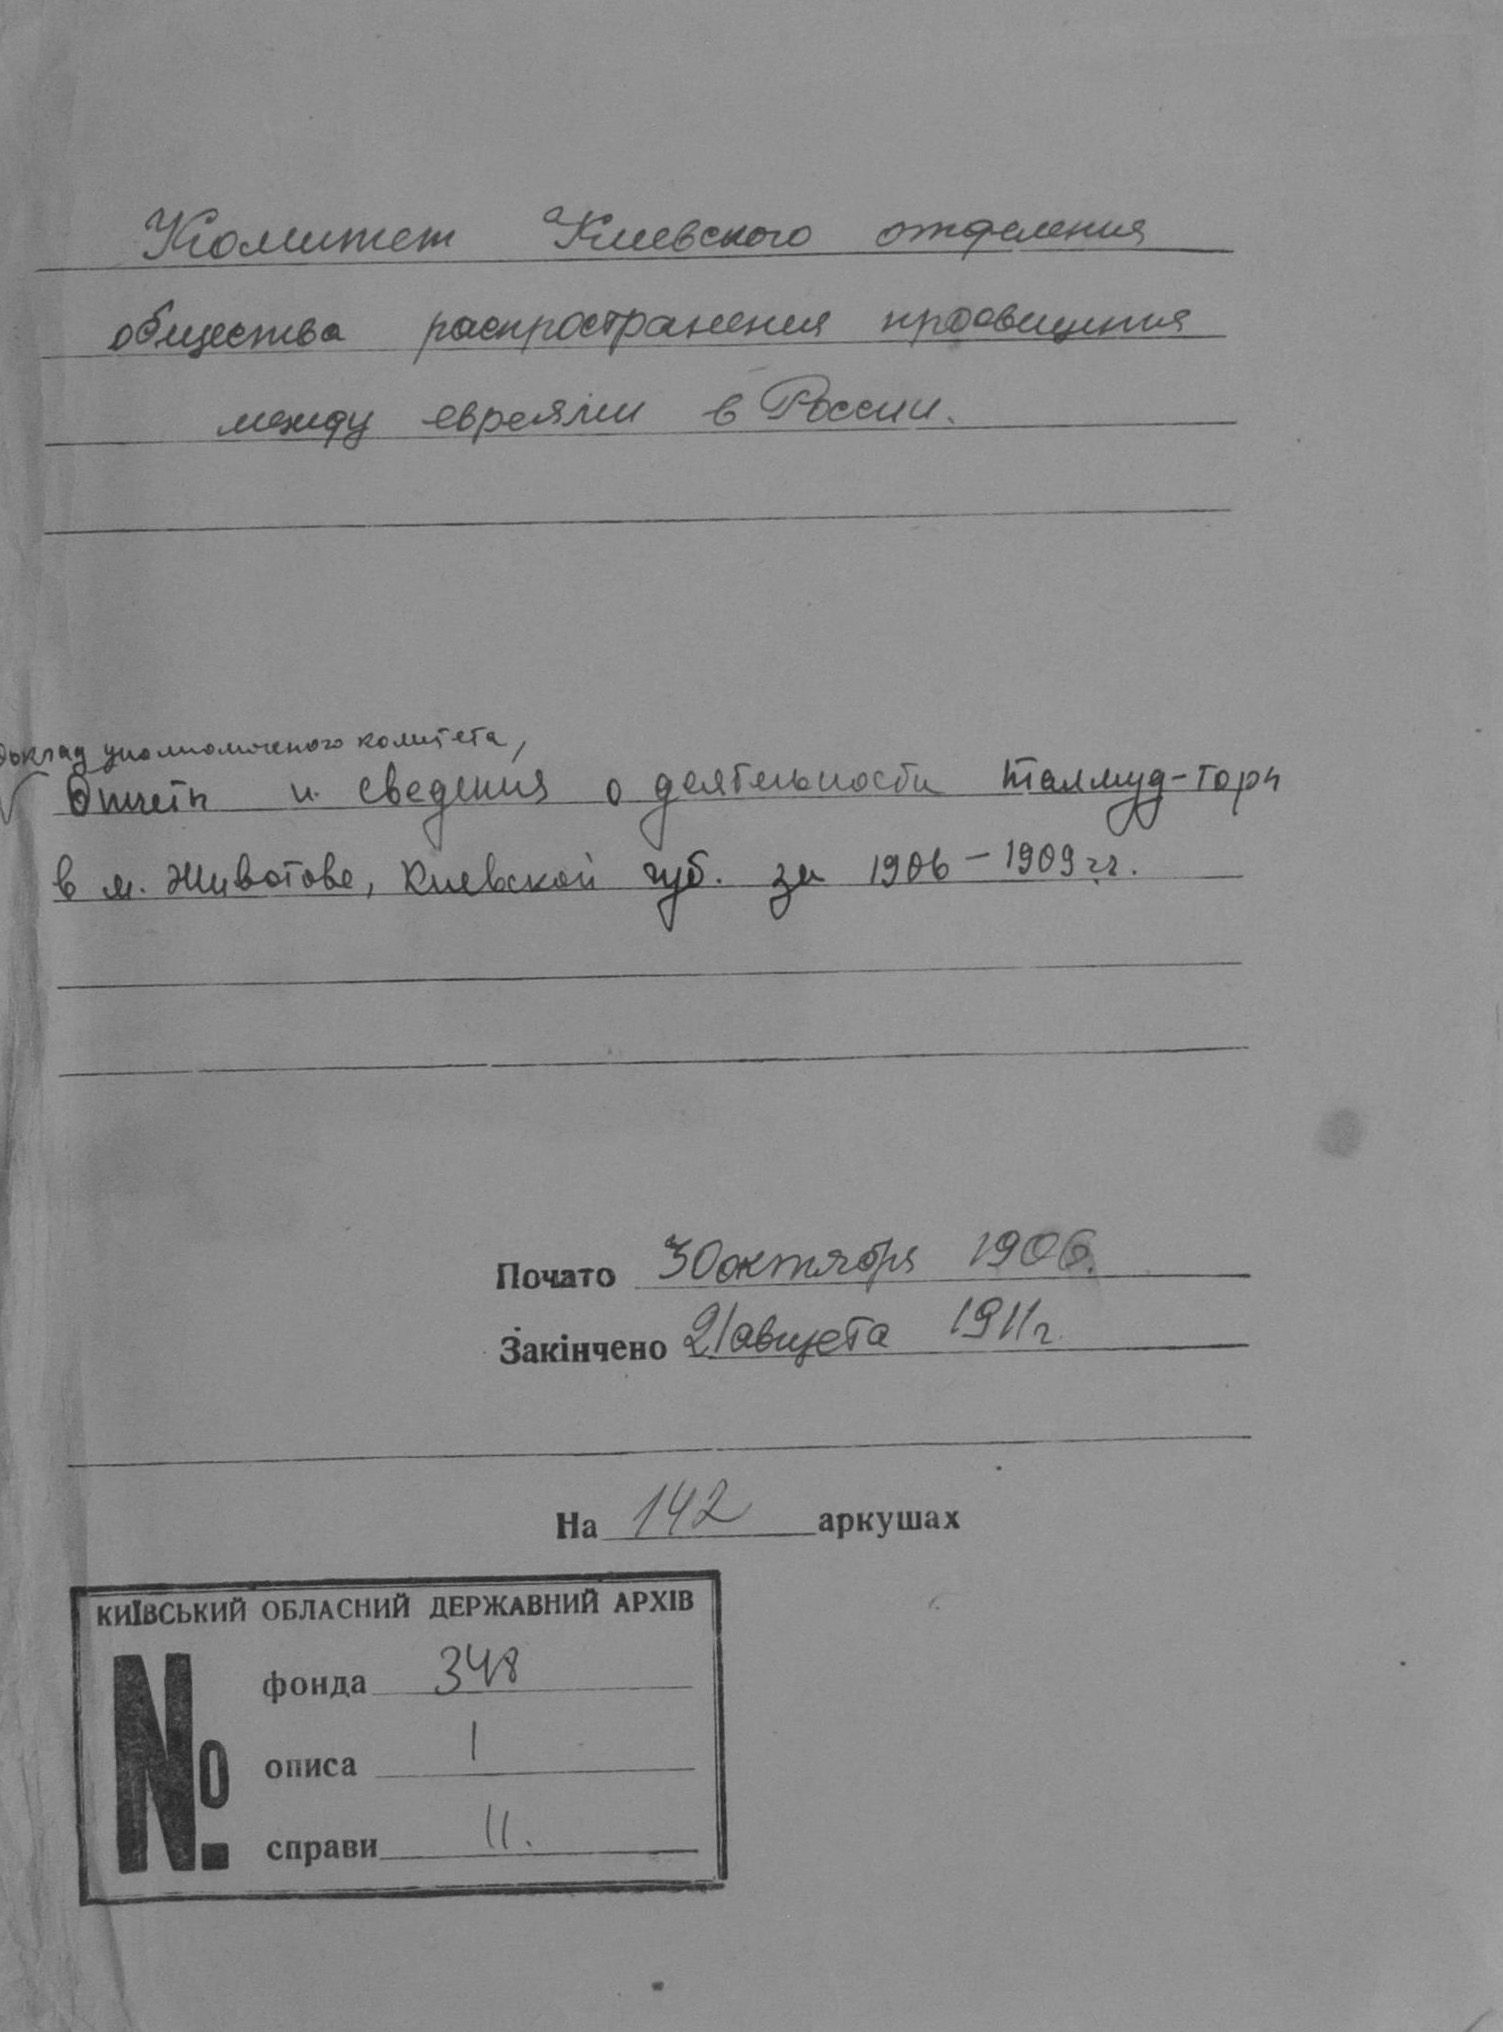 Комитет Киевского отделения
общества распространения просвещения
между евреями в России.
Доклад уполномоченого комитета,
Отчеты и сведения о деятельности талмуд-торы
в м. Животове, Киевской губ. за 1906-1909 гг.
Почато 30 октября 1906.
Закінчено 21 августа 1911 г.
На 142 аркушах
КИЇВСЬКИЙ ОБЛАСНИЙ ДЕРЖАВНИЙ АРХІВ
№
фонда 348
описа 1
справи 11.